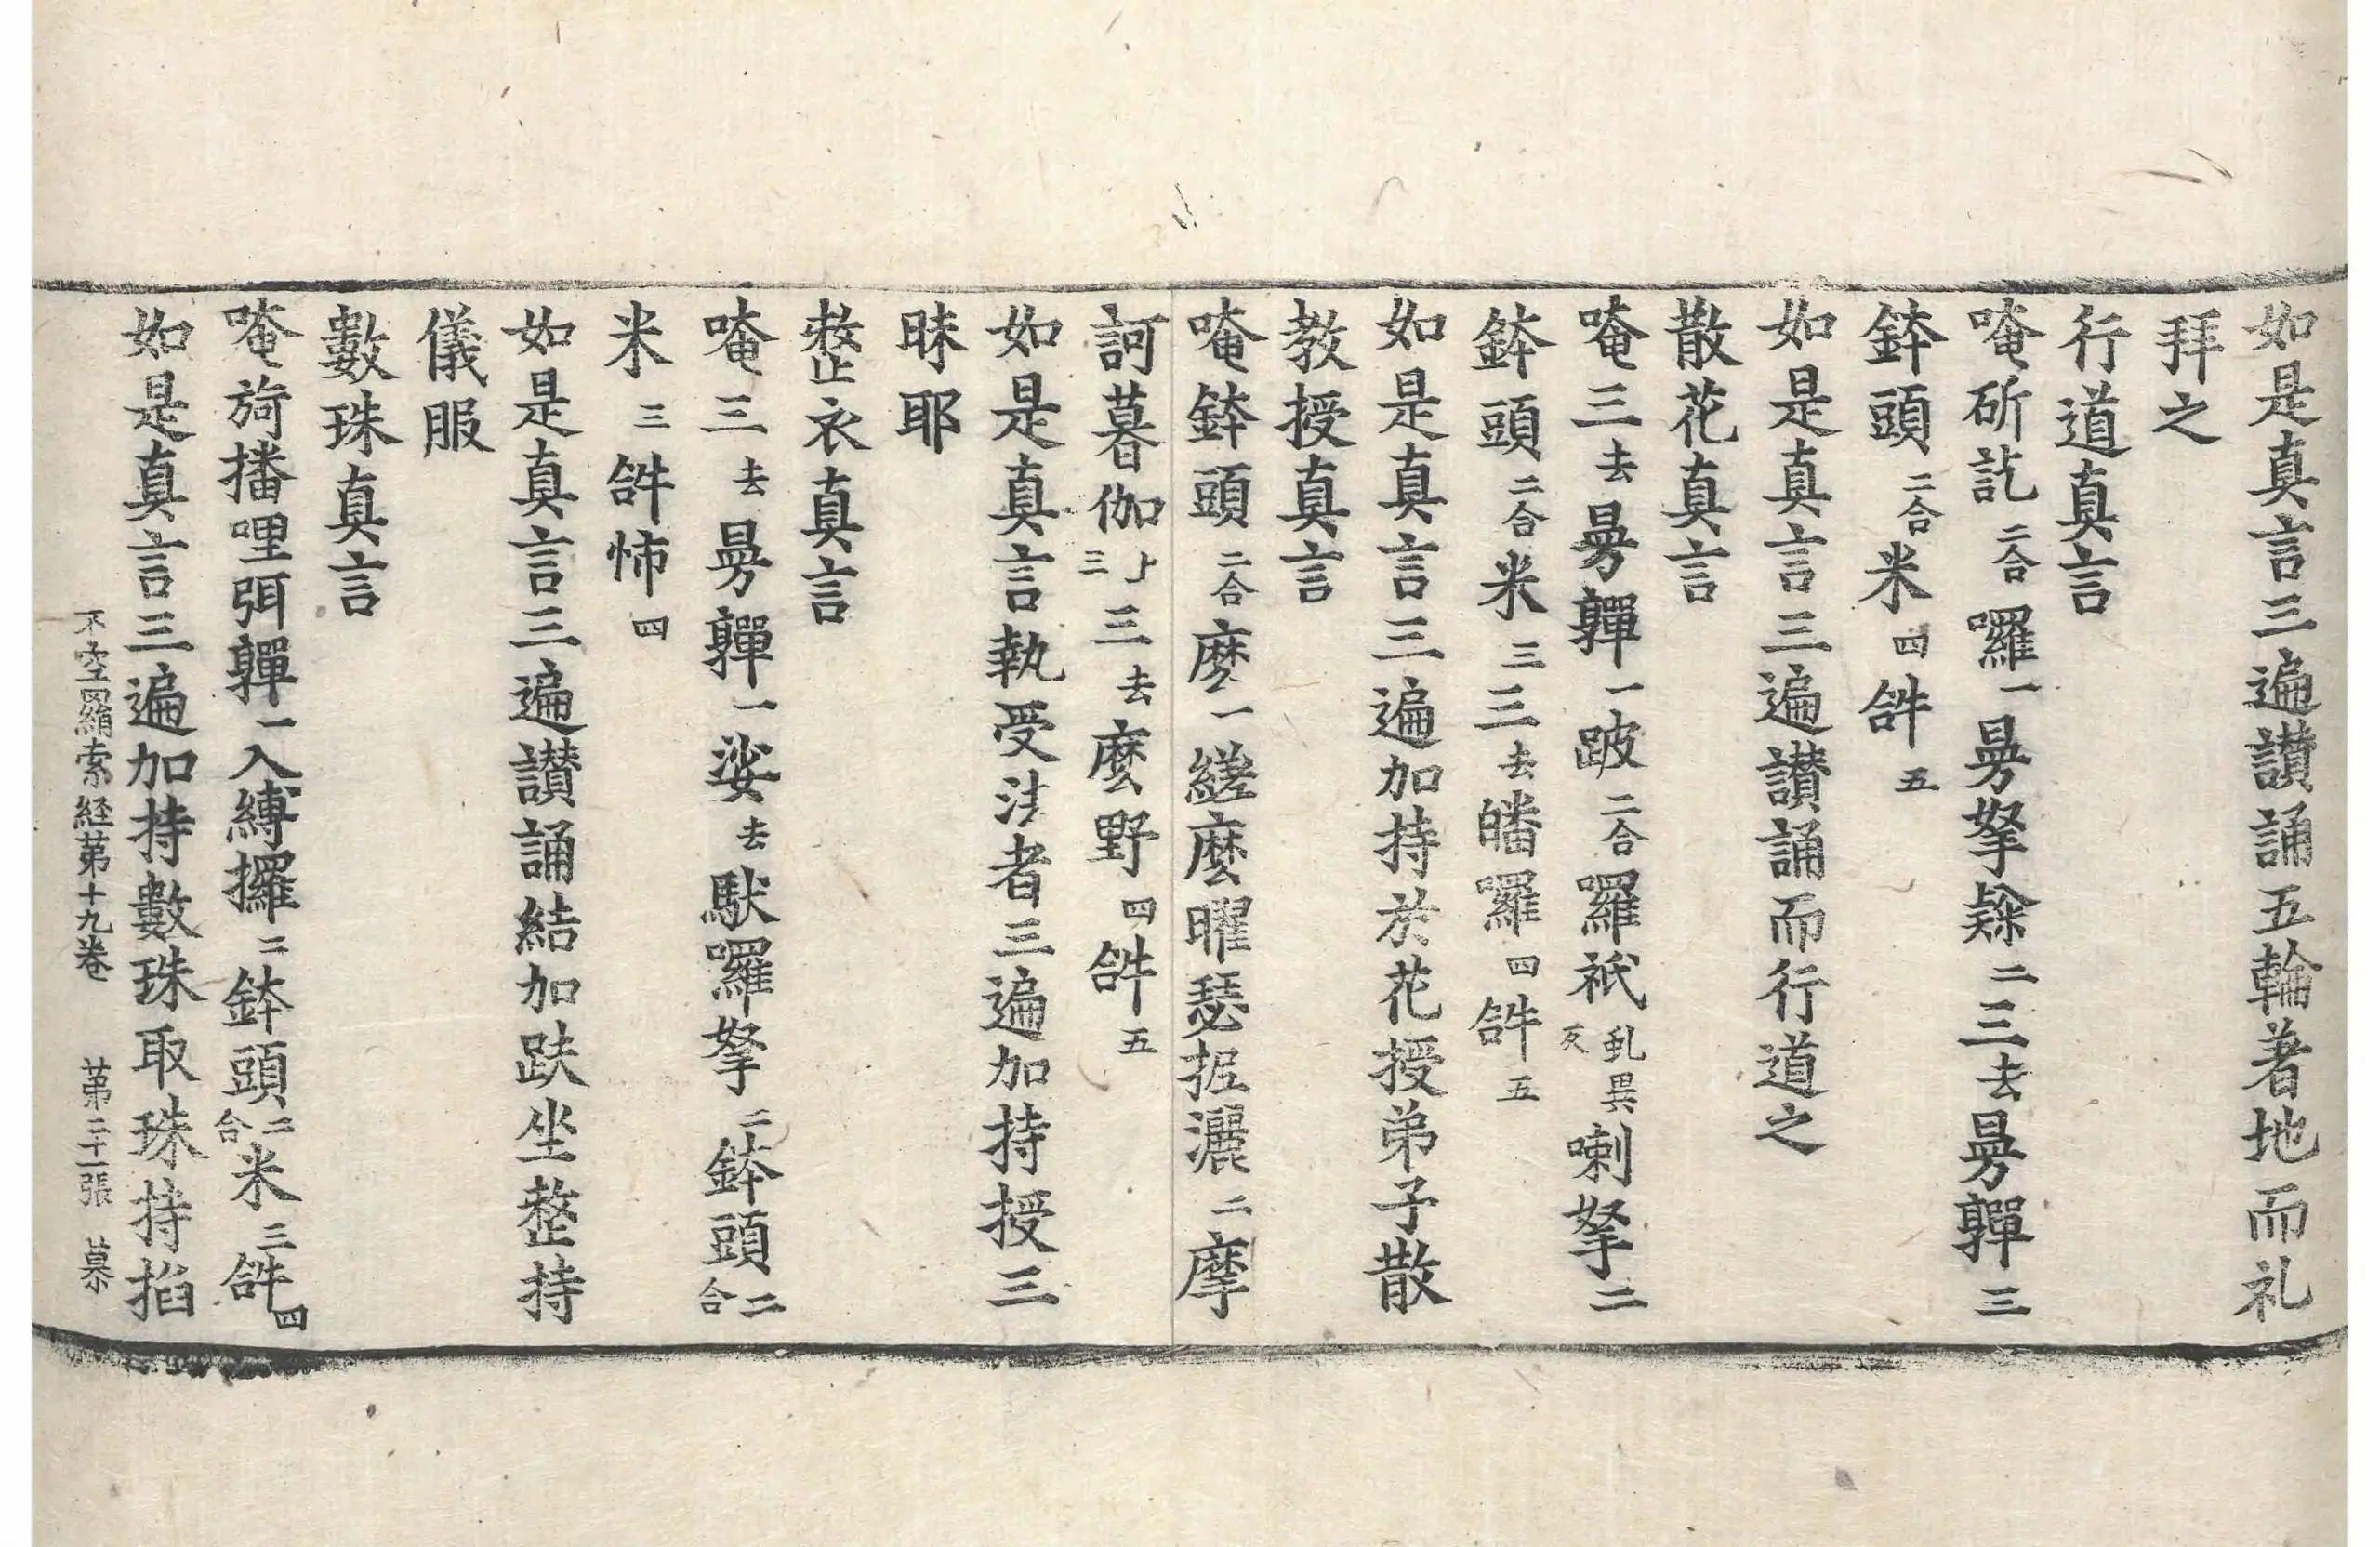 如是真言三遍讃誦五輪著地而礼
拜之
行道真言
唵斫訖二合囉一㬅拏𨅖二三去㬅亸三
鉢頭二合米四𤙖五
如是真言三遍讃誦而行道之
散花真言
唵三去㬅亸一跛二合囉祇虬異反喇拏二
鉢頭二合米三三去皤囉四𤙖五
如是真言三遍加持於花授弟子散
教授真言
唵鉢頭二合麽一縒麽曜瑟抳灑二摩
訶暮伽上三三去麽野四𤙖五
如是真言執受法者三遍加持授三
昧耶
整衣真言
唵三去㬅亸一娑去馱囉拏二鉢頭二合
米三𤙖怖四
如是真言三遍讃誦結加趺坐整持
儀服
數珠真言
唵旖播哩弭亸一入縛攞二鉢頭二合米三𤙖四
如是真言三遍加持數珠取珠持掐
不空羂索経苐十九卷 苐二十一張 慕